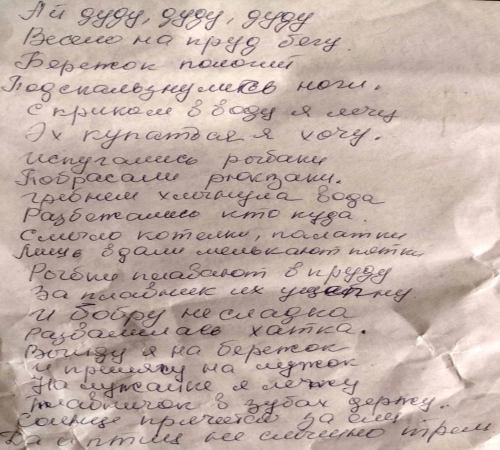 Ай дуду, дуду, дуду
Весело на пруд бегу.
Бережок пологий
Подскальзнулись ноги.
С криком в воду я лечу
Эх купаться я хочу.
Испугались рыбаки
Побрасали рюкзаки.
Гребнем хлынула вода
Разбежались кто куда.
Смыло котелки, палатки
Лишь вдали мелькают пятки
Рыбки плавают в пруду
За плавник их ущипну.
И бобру не сладко
Развалилась хатка.
Выйду я на бережок
И прилягу на лужок
На лужайке я лежу
Плавничок в зубах держу..
Солнце прячется за ели
Да и птиц не слышно трели